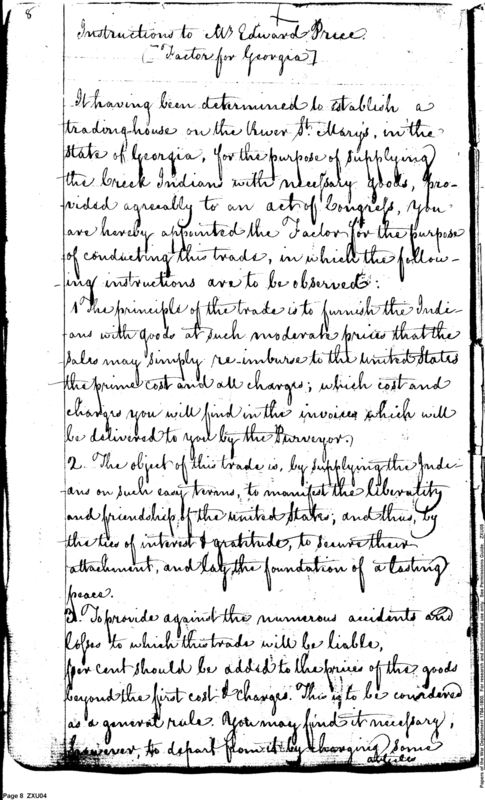 8
Instructions to Mr Edward Price.
[Factor for Georgia]
It having been determined to establish a
trading-house on the River St. Mary's, in the
state of Georgia, for the purpose of supplying
the Creek Indians with necessary goods, pro-
vided agreeably to an act of Congress, You
are hereby appointed the Factor for the purpose
of conducting this trade, in which the follow-
ing instructions are to be observed:
1 The principle of the trade is to furnish the Indi-
ans with goods at such moderate prices that the
sales may simply re-imburse to the united States
the prime cost and all charges; which cost and
charges you will find in the invoices which will
be delivered to you by the Purveyor.
2. The object of this trade is, by supplying the Indi-
ans on such easy terms, to manifest the liberality
and friendship of the united States; and thus, by
the ties of interest & gratitude, to secure their
attachment, and lay the foundation of a lasting
peace.
3. To provide against the numerous accidents and
losses to which this trade will be liable,
per cent should be added to the prices of the goods
beyond the first cost & charges. This is to be considered
as a general rule. You may find it necessary,
however, to depart from it by charging some
articles
Page 8 ZXU04